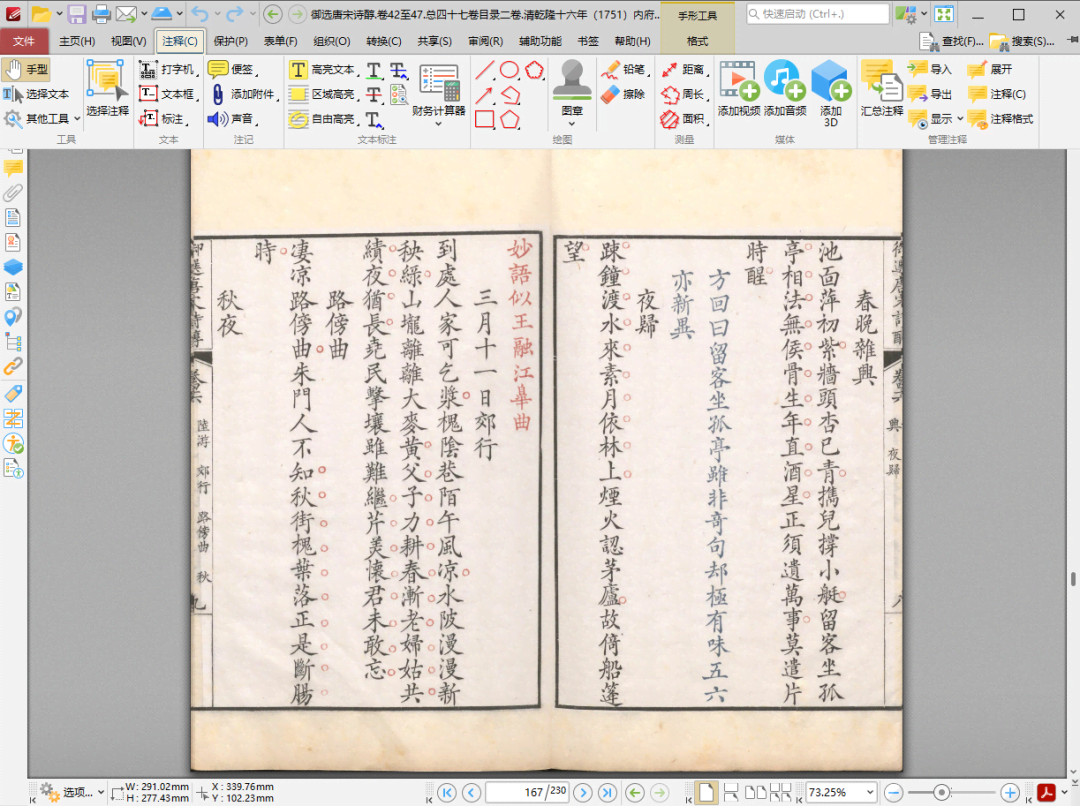 御选唐宋诗醇.卷42至47.总四十七卷目录二卷.清乾隆十六年（1751）内府..
手形工具
快速启动 (Ctrl+.)
文件
主页(H)
视图(V)
注释(C)
保护(P)
表单(F)
组织(O)
转换(C)
共享(S)
审阅(R)
辅助功能
书签
帮助(H)
格式
查找(F)...
搜索(S)...
手型
选择文本
其他工具
选择注释
打字机
文本框
标注
便签
添加附件
声音
高亮文本
区域高亮
自由高亮
财务计算器
铅笔
擦除
图章
距离
周长
面积
添加视频
添加音频
添加
3D
汇总注释
导入
导出
显示
展开
注释(C)
注释格式
工具
文本
注记
文本标注
绘图
测量
媒体
管理注释
春晚雜興
池面萍初紫牆頭杏已青擕兒撑小艇留客坐孤
亭相法無侯骨生年直酒星正須遺萬事莫遣片
時醒
方回曰留客坐孤亭雖非奇句却極有味五六
亦新異
夜歸
踈鐘渡水來素月依林上煙火認茅廬故倚船篷
望
妙語似王融江皐曲
三月十一日郊行
到處人家可乞漿槐陰巷陌午風凉水陂漫漫新
秧緑山壠離離大麥黄父子力耕春漸老婦姑共
績夜猶長堯民擊壤雖難繼芹羙懷君未敢忘
路傍曲
凄凉路傍曲朱門人不知秋街槐葉落正是斷腸
時
秋夜
興
夜歸
八
陸游
郊行
路傍曲
秋
九
选项...
W: 291.02mm
H: 277.43mm
X : 339.76mm
Y : 102.23mm
167/230
73.25%